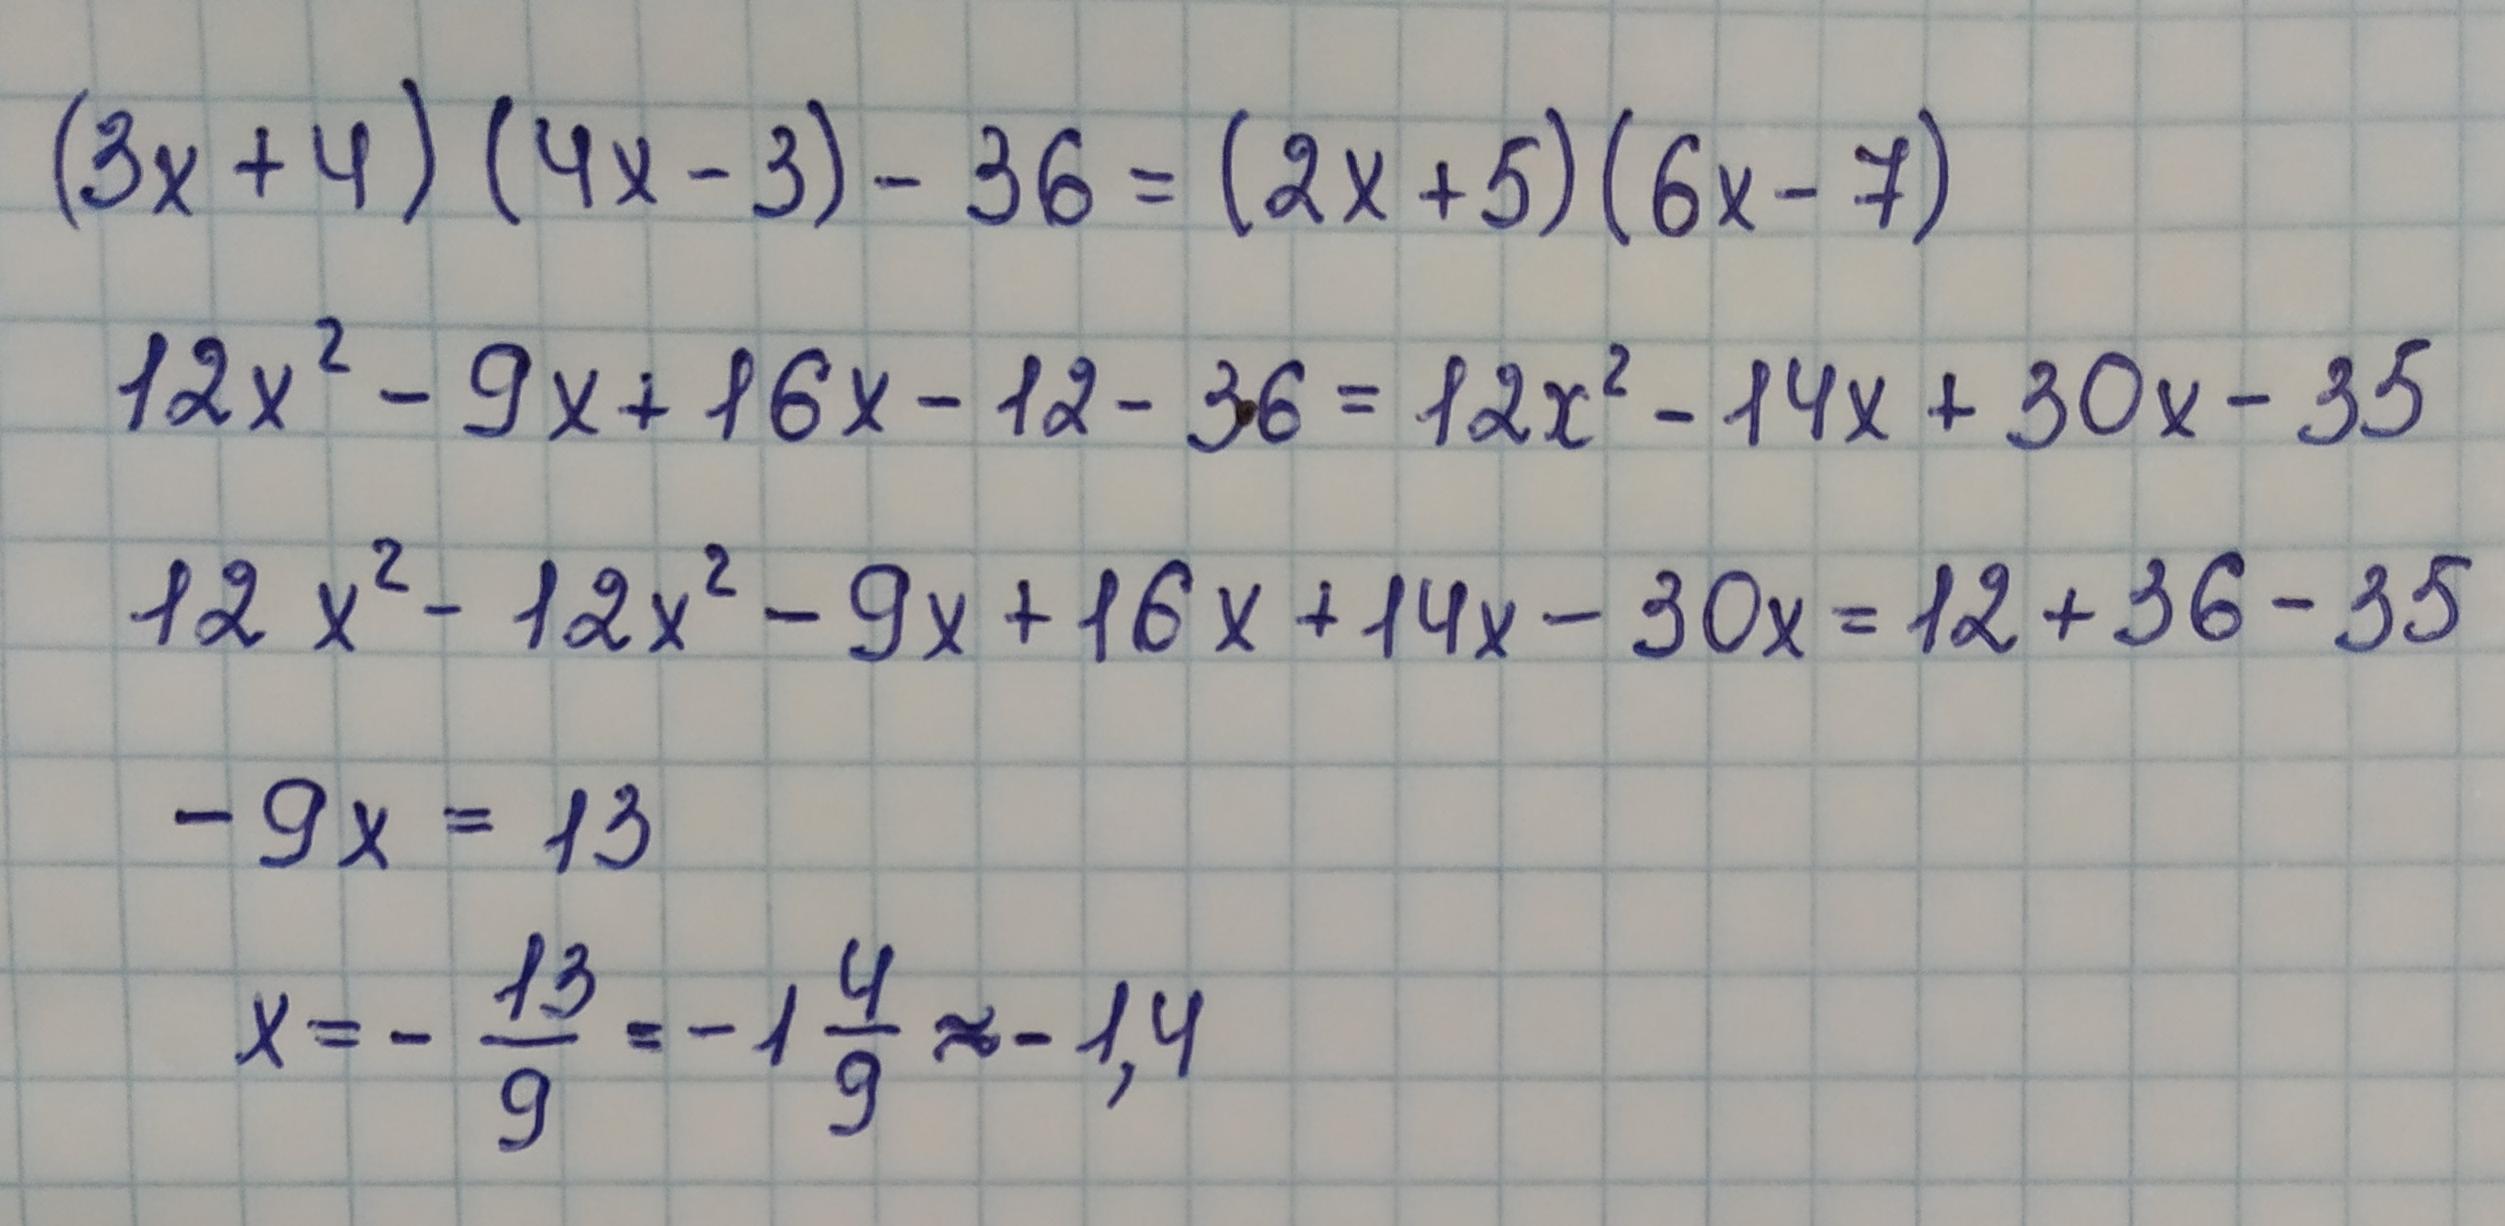 (3x + 4) (4x - 3) - 36 = (2x + 5) (6x - 7)
12x² - 9x + 16x - 12 - 36 = 12x² - 14x + 30x - 35
12x² - 12x² - 9x + 16x + 14x - 30x = 12 + 36 - 35
-9x = 13
x = - 13/9 = -1 4/9 ≈ -1,4